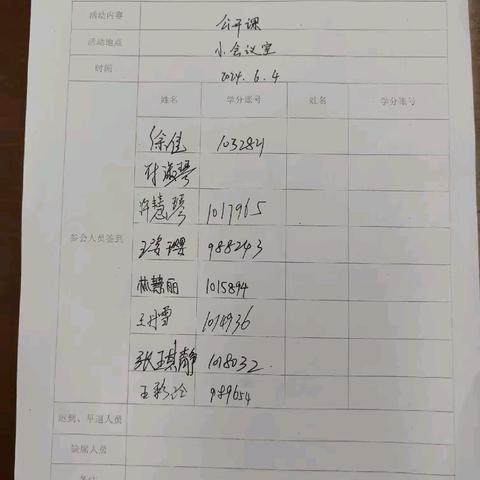 活动内容 公开课
活动地点 小会议室
时间 2024.6.4
姓名 学分账号 姓名 学分账号
参会人员签到
徐佳 1032821
付淑琴
许慧琴 1017965
988243
林慧丽 1015894
王丹雪 1014936
张琪静 1018032
王彩玲 989654
迟到、早退人员
缺席人员
备注